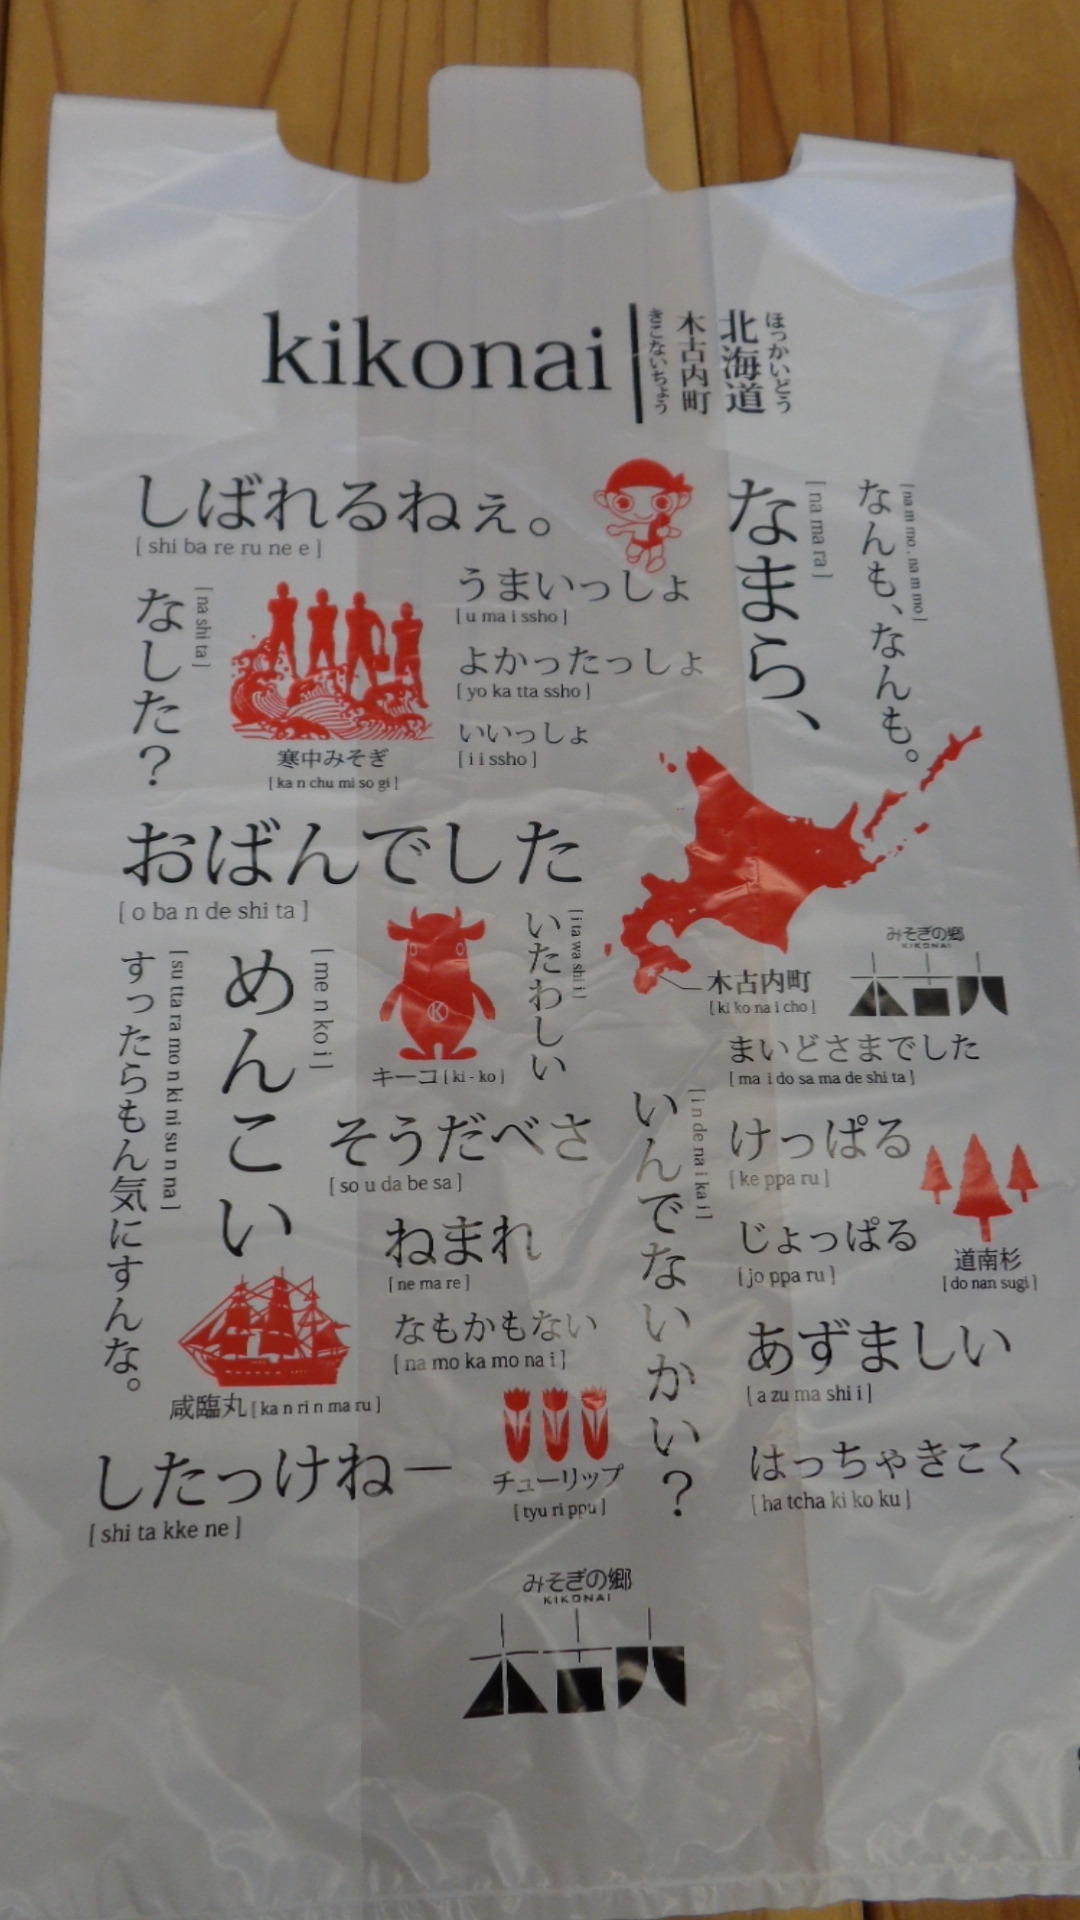 kikonai
ほっかいどう
北海道
木古内町
きこないちょう
しばれるねぇ。
[ shi ba re ru ne e ]
なんも、なんも。
[ na m mo . na m mo ]
なまら、
[ na ma ra ]
うまいっしょ
[ u ma i ssho ]
よかったっしょ
[ yo ka tta ssho ]
いいっしょ
[ i i ssho ]
なした?
[ na shi ta ]
寒中みそぎ
[ ka n chu mi so gi ]
おばんでした
[ o ba n de shi ta ]
みそぎの郷
KIKONAI
木古内
木古内町
[ ki ko na i cho ]
いたわしい
[ i ta wa shi i ]
キーコ [ ki - ko ]
めんこい
[ me n ko i ]
すったらもん気にすんな。
[ su tta ra mo n ki ni su n na ]
まいどさまでした
[ ma i do sa ma de shi ta ]
そうだべさ
[ so u da be sa ]
いんでないかい?
[ i n de na i ka i ]
けっぱる
[ ke ppa ru ]
ねまれ
[ ne ma re ]
じょっぱる
[ jo ppa ru ]
道南杉
[ do nan sugi ]
なもかもない
[ na mo ka mo na i ]
あずましい
[ a zu ma shi i ]
咸臨丸 [ ka n ri n ma ru ]
チューリップ
[ tyu ri ppu ]
したっけねー
[ shi ta kke ne ]
はっちゃきこく
[ ha tcha ki ko ku ]
みそぎの郷
KIKONAI
木古内